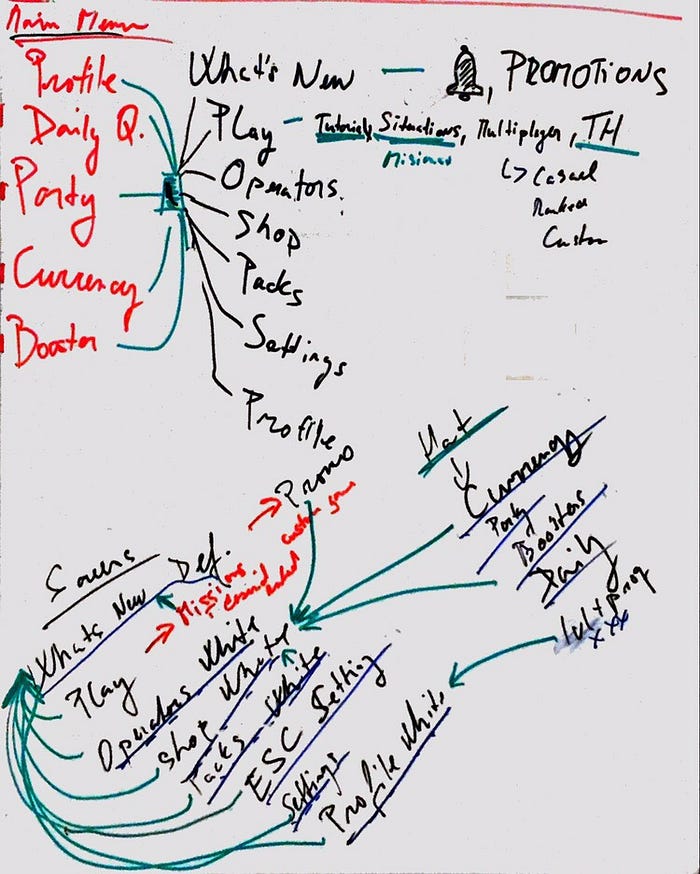 Main Menu
Profile
Daily Q.
Party
Currency
Booster
What's New — , PROMOTIONS
Play – Tutorials, Situations, Multiplayer, TH
Misiones
↳ Casual
Ranked
Custom
Operators
Shop
Packs
Settings
Profile
Promo
→ custom game
Def.
→ Missions
casual
ranked
Whats New
Play
Operators White
Shop White
Packs White
ESC Setting
Settings
Profile White
Currency
Party
Boosters
Daily
lvl + prog
xxx